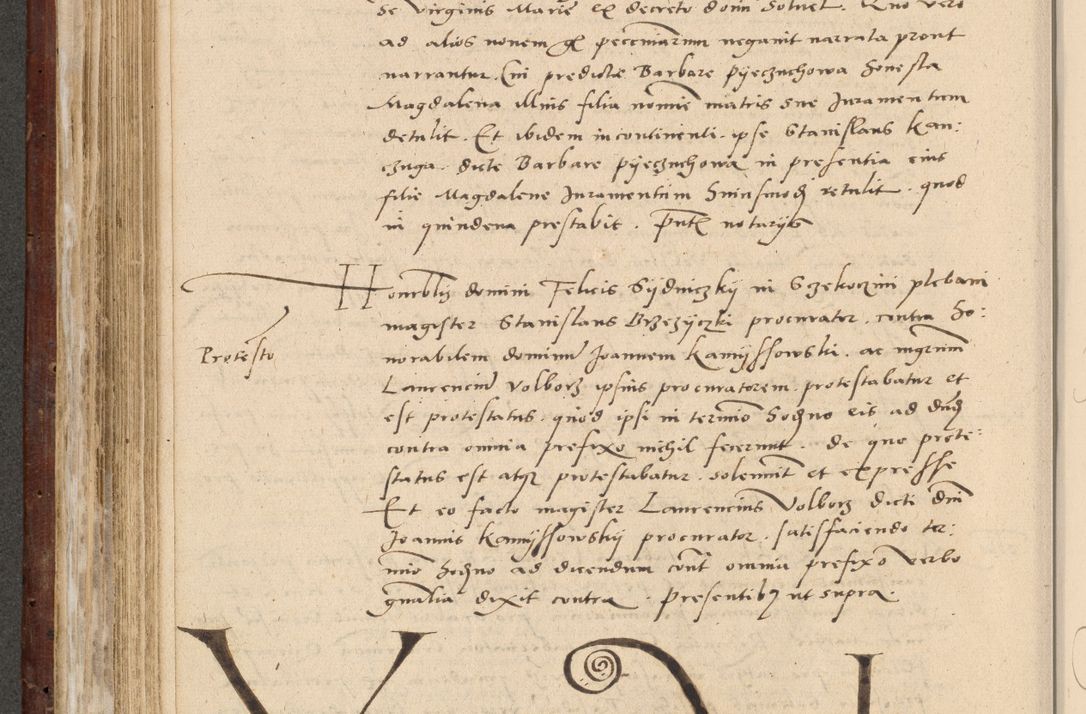 se virginis Marie ex decreto domi solvet. Quo vero
ad alios novem gl pecuniarum negavit narrata prout
narrantur. Cui predicte Barbare Pyeczuchowa honesta
Magdalena illius filia nomine matris sue Juramentum
detulit. Et ibidem incontinenti. ipse Stanislaus Kan:
czuga. dicte Barbare Pyeczuchowa in presentia eius
filie Magdalene Juramentum huiusmodi retulit. quod
in quindena prestabit. Pntt notarys
Honorblis domini Felicis Sydniczky in Sczekoczini plebani
magister Stanislaus Brzezyczki procurator. contra Ho:
Protesto
norabilem dominu Joannem Kamyssowski. ac mgrum
Laurenciu Volborz ipsius procuratorem. protestabatur et
est protestatus. quod ipsi in termio hodierno eis ad dnd
contra omnia prefixo nichil fecerunt. de quo prote:
status est atqz protestabatur. solennit et expresse
Et eo facto magister Laurencius Volborz dicti dni
Joannis Kamyssowsky procurator. satisfaciendo ter:
mio hodierno ad dicendum cont omnia prefixo verbo
gnalia dixit contra. Presentibz ut supra.